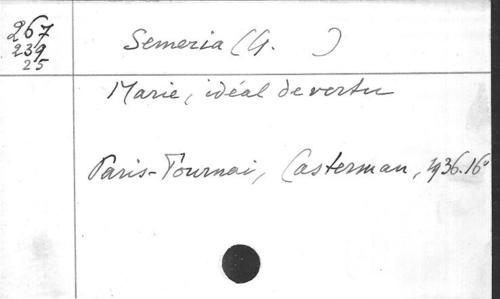 267
239
25
Semeria (G. )
Marie, idéal de vertu
Paris-Tournai, Casterman, 1936. 16°